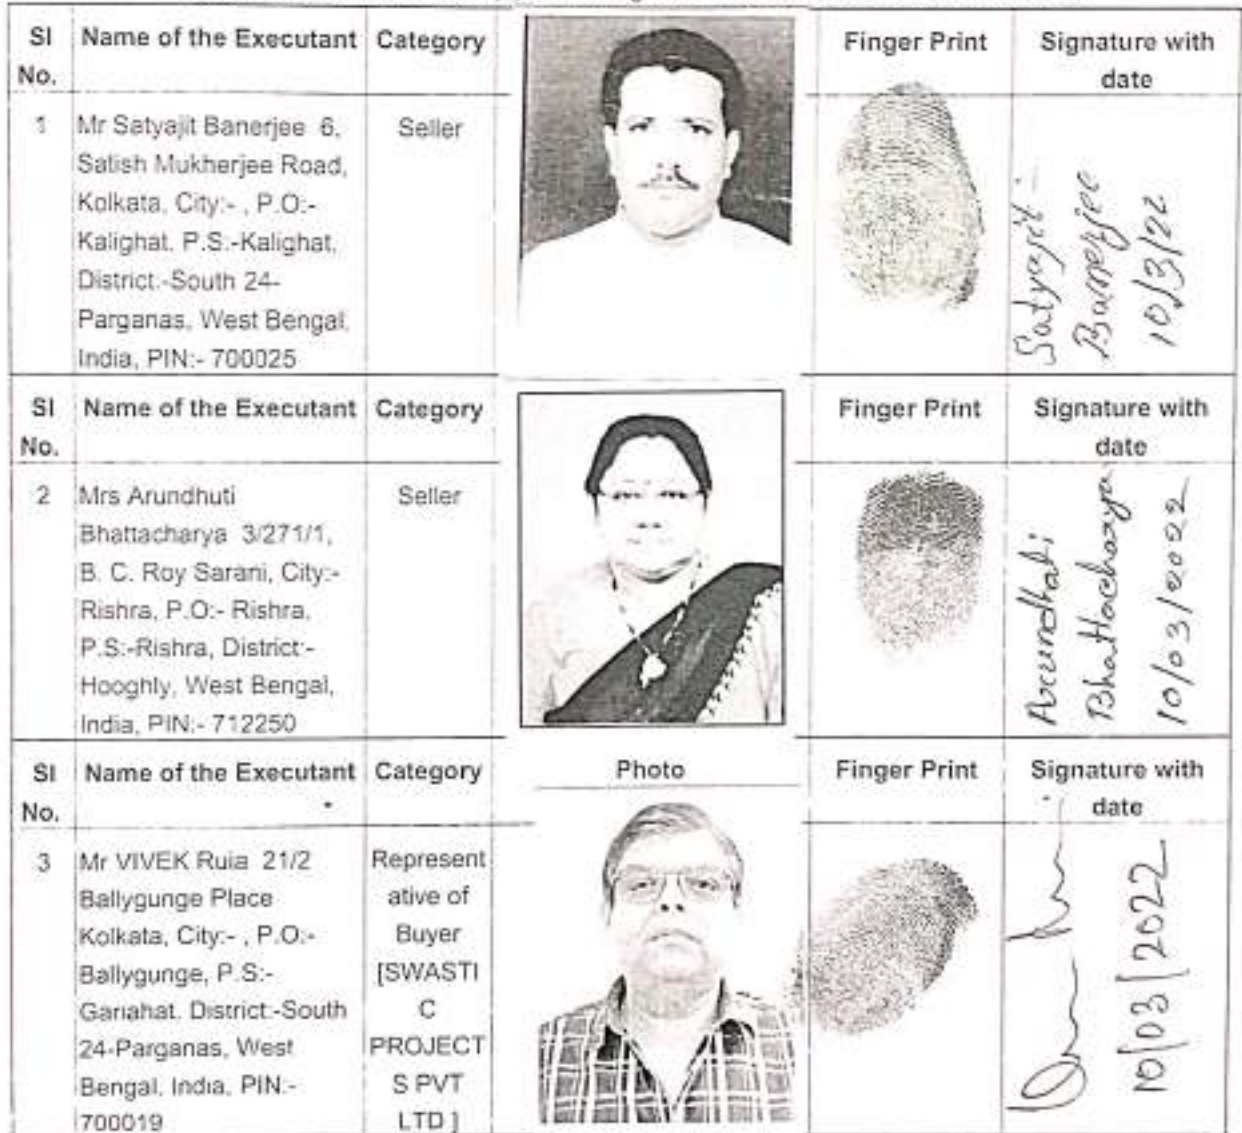 Sl No. Name of the Executant Category Finger Print Signature with date
1 Mr Satyajit Banerjee 6, Seller
Satish Mukherjee Road,
Kolkata, City:- , P.O:-
Kalighat, P.S:-Kalighat,
District:-South 24-
Parganas, West Bengal,
India, PIN:- 700025
Satyajit
Banerjee
10/3/22
Sl No. Name of the Executant Category Finger Print Signature with date
2 Mrs Arundhuti Seller
Bhattacharya 3/271/1,
B. C. Roy Sarani, City:-
Rishra, P.O:- Rishra,
P.S:-Rishra, District:-
Hooghly, West Bengal,
India, PIN:- 712250
Arundhati
Bhattacharya
10/03/2022
Sl No. Name of the Executant Category Photo Finger Print Signature with date
3 Mr VIVEK Ruia 21/2
Ballygunge Place
Kolkata, City:- , P.O:-
Ballygunge, P.S:-
Gariahat, District:-South
24-Parganas, West
Bengal, India, PIN:-
700019
Represent
ative of
Buyer
[SWASTI
C
PROJECT
S PVT
LTD ]
10/03/2022